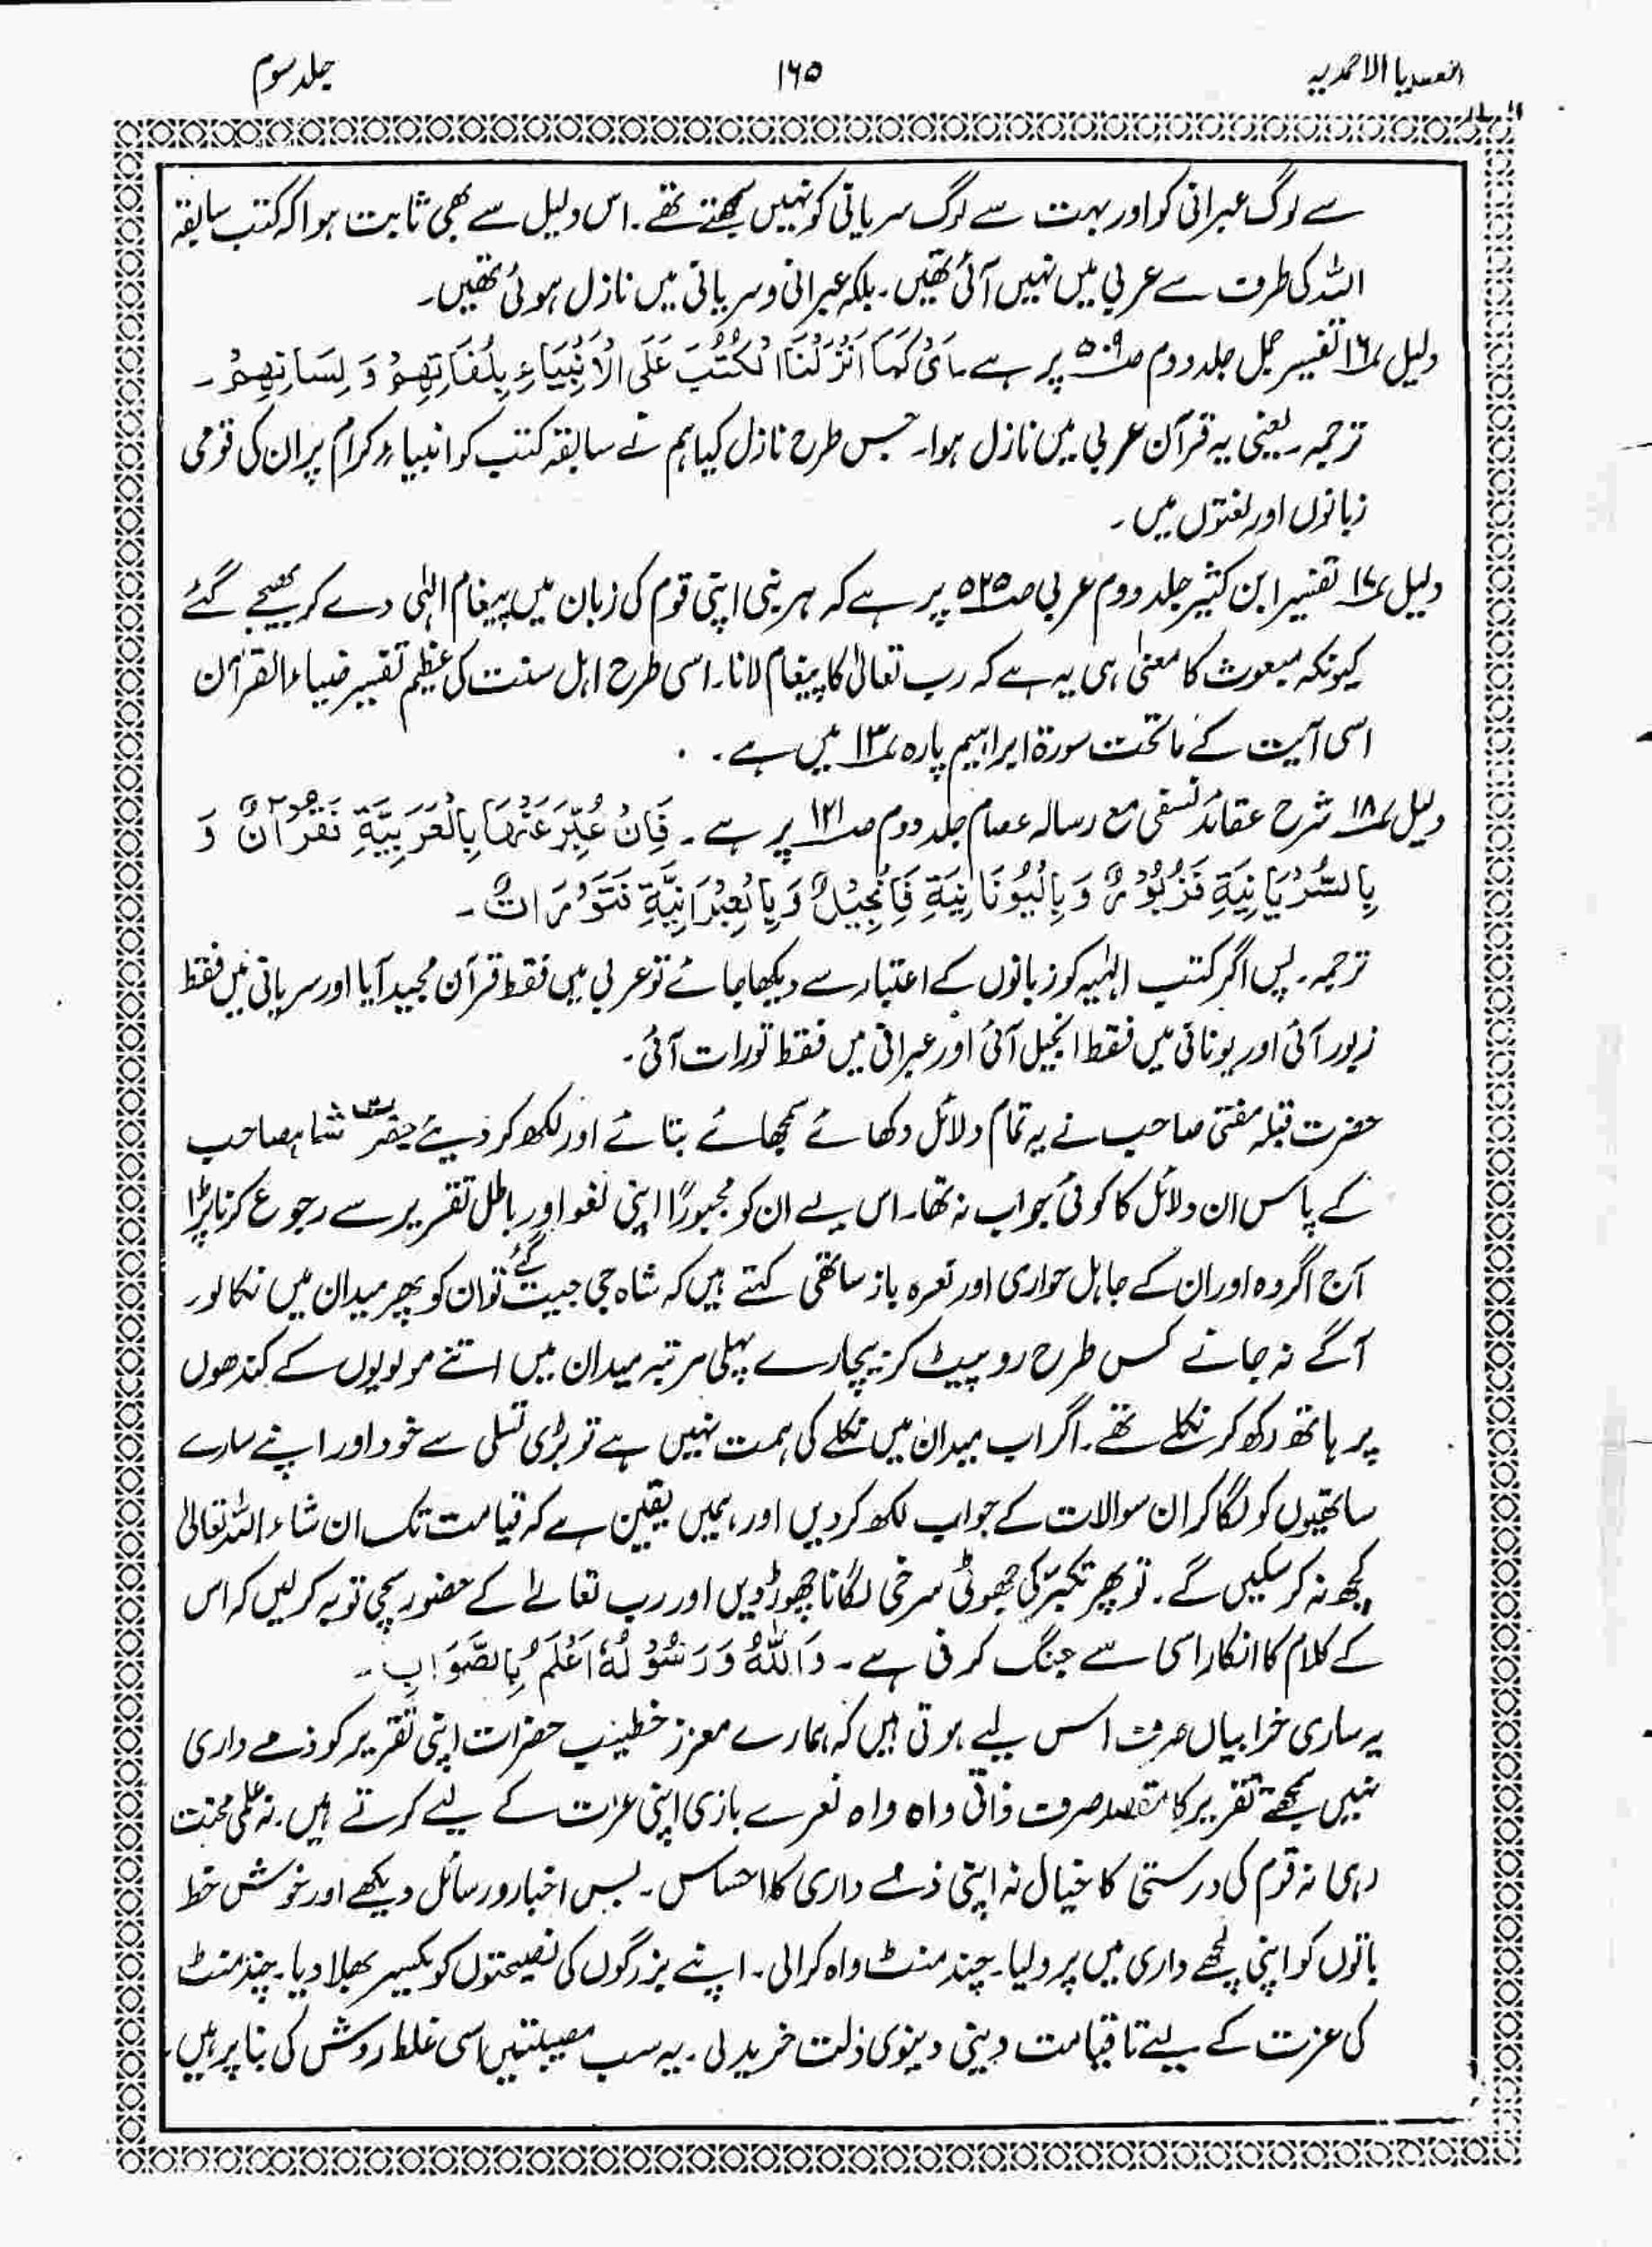 العطایا الاحمدیہ ۱۶۵ جلد سوم
سے لوگ عبرانی کو اور بہت سے لوگ سریانی کو نہیں سمجھتے تھے۔ اس دلیل سے بھی ثابت ہوا کہ کتب سابقہ
اللہ کی طرف سے عربی میں نہیں آئی تھیں۔ بلکہ عبرانی و سریانی میں نازل ہوئی تھیں۔
دلیل ۱۶ تفسیر جمل جلد دوم صـ۵۰۹ پر ہے۔ اَیْ کَمَا اَنْزَلْنَا الْکُتُبَ عَلَی الْاَنْبِیَاءِ بِلُغَاتِھِمْ وَ لِسَانِھِمْ۔
ترجمہ۔ یعنی یہ قرآن عربی میں نازل ہوا۔ جس طرح نازل کیا ہم نے سابقہ کتب کو انبیاء کرام پر ان کی قومی
زبانوں اور لغتوں میں۔
دلیل ۱۷ تفسیر ابن کثیر جلد دوم عربی صـ۵۲۵ پر ہے کہ ہر نبی اپنی قوم کی زبان میں پیغام الٰہی دے کر بھیجے گئے
کیونکہ مبعوث کا معنیٰ ہی یہ ہے کہ رب تعالیٰ کا پیغام لانا۔ اسی طرح اہل سنت کی عظیم تفسیر ضیاء القرآن
اسی آیت کے ماتحت سورۃ ابراہیم پارہ ۱۳ میں ہے۔
دلیل ۱۸ شرح عقائد نسفی مع رسالہ عصام جلد دوم صـ۱۲۱ پر ہے۔ فَاِنْ عُبِّرَ عَنْهَا بِالْعَرَبِیَّةِ فَقُرْاٰنٌ وَ
بِالسُّرْیَانِیَةِ فَزَبُوْرٌ وَ بِالْیُوْنَانِیَةِ فَاِنْجِیْلٌ وَ بِالْعِبْرَانِیَّةِ فَتَوْرَاتٌ۔
ترجمہ۔ پس اگر کتب الٰہیہ کو زبانوں کے اعتبار سے دیکھا جائے تو عربی میں فقط قرآن مجید آیا اور سریانی میں فقط
زبور آئی اور یونانی میں فقط انجیل آئی اور عبرانی میں فقط تورات آئی۔
حضرت قبلہ مفتی صاحب نے یہ تمام دلائل دکھائے سمجھائے بتائے اور لکھ کر دیئے حضرت شاہ صاحب
کے پاس ان دلائل کا کوئی جواب نہ تھا۔ اس لیے ان کو مجبورًا اپنی لغو اور باطل تقریر سے رجوع کرنا پڑا
آج اگر وہ اور ان کے جاہل حواری اور نعرہ باز ساتھی کہتے ہیں کہ شاہ جی جیت گئے تو ان کو پھر میدان میں نکالو۔
آگے نہ جانے کس طرح رو پیٹ کر بیچارے پہلی مرتبہ میدان میں اتنے مولویوں کے کندھوں
پر ہاتھ رکھ کر نکلے تھے۔ اگر اب میدان میں نکلنے کی ہمت نہیں ہے تو بڑی تسلی سے خود اور اپنے سارے
ساتھیوں کو لگا کر ان سوالات کے جواب لکھ کر دیں اور ہمیں یقین ہے کہ قیامت تک ان شاء اللہ تعالیٰ
کچھ نہ کر سکیں گے۔ تو پھر تکبر کی جھوٹی سرخی لگانا چھوڑ دیں اور رب تعالےٰ کے حضور سچی توبہ کر لیں کہ اس
کے کلام کا انکار اسی سے جنگ کرنی ہے۔ وَاللّٰهُ وَ رَسُوْلُهٗ اَعْلَمُ بِالصَّوَابِ۔
یہ ساری خرابیاں صرف اس لیے ہوتی ہیں کہ ہمارے معزز خطیب حضرات اپنی تقریر کو ذمے داری
نہیں سمجھتے تقریر کا مقصد صرف ذاتی واہ واہ نعرے بازی اپنی عزت کے لیے کرتے ہیں۔ نہ علمی محنت
رہی نہ قوم کی درستی کا خیال نہ اپنی ذمے داری کا احساس۔ بس اخبار و رسائل دیکھے اور خوش خط
باتوں کو اپنی لچھے داری میں پرو لیا۔ چند منٹ واہ کرالی۔ اپنے بزرگوں کی نصیحتوں کو یکسر بھلا دیا۔ چند منٹ
کی عزت کے لیئے تا قیامت دینی دینوی ذلت خرید لی۔ یہ سب مصیبتیں اسی غلط روش کی بنا پر ہیں۔